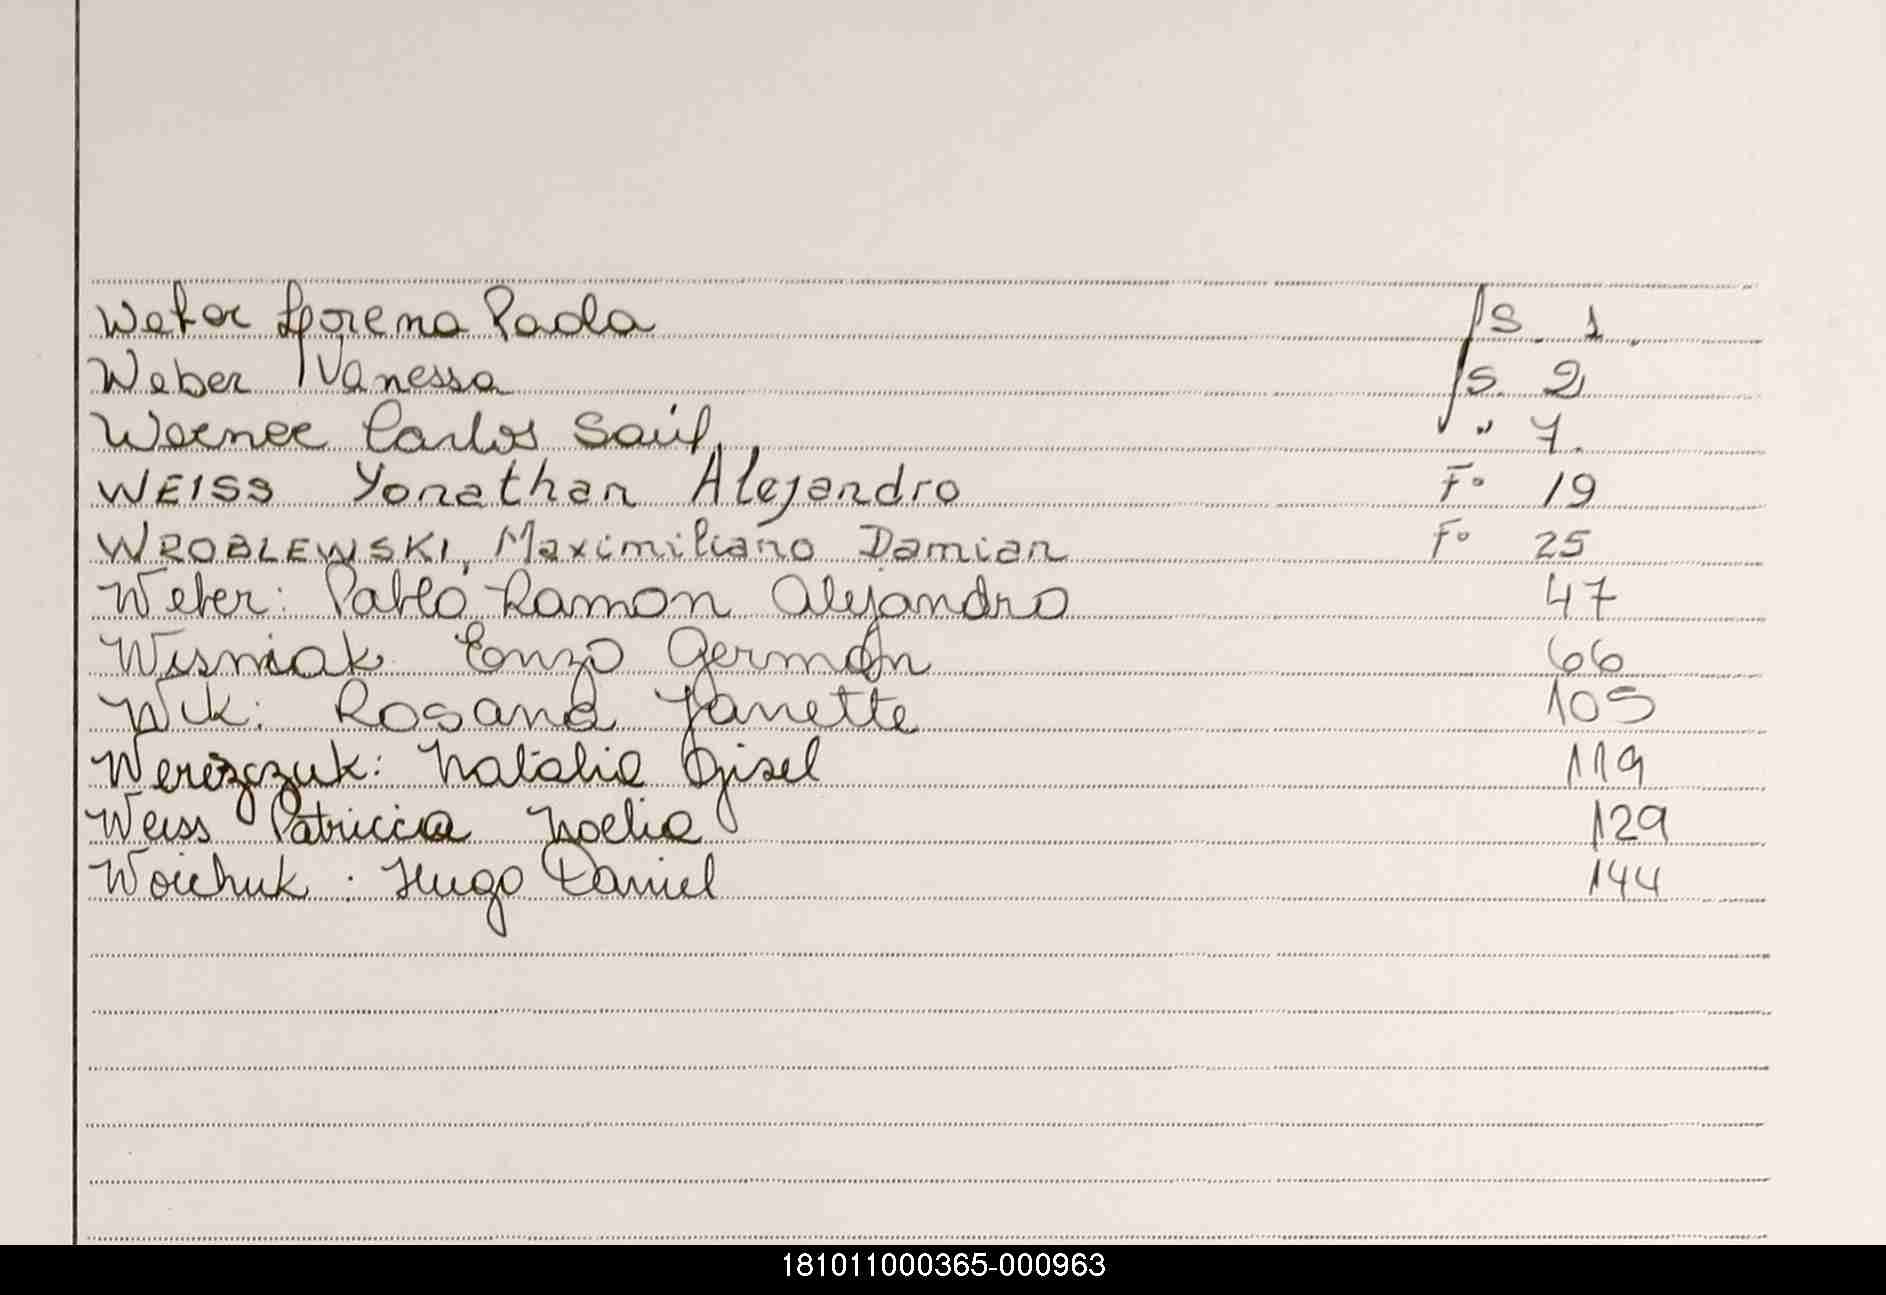 Weber Lorena Paola fs. 1.
Weber Vanessa fs. 2
Werner Carlos Saúl " 7.
WEISS Yonathan Alejandro Fº 19
WROBLEWSKI, Maximiliano Damian Fº 25
Weber: Pablo Ramon Alejandro 47
Wisniak Enzo Germán 66
Wik: Rosana Janette 105
Werezczuk: Natalia Gisel 119
Weiss Patriccia Noelia 129
Woichuk : Hugo Daniel 144
181011000365-000963